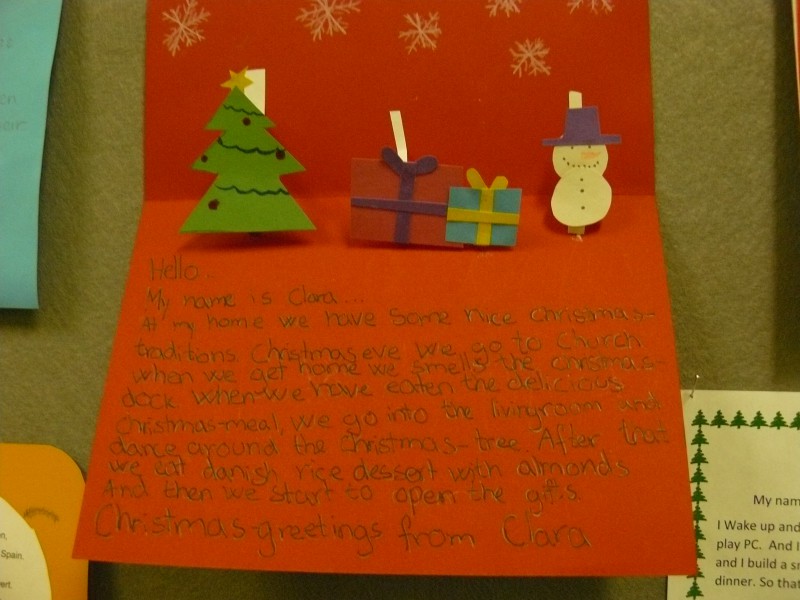 Hello..
My name is Clara...
At my home we have some nice Christmas-
traditions. Christmas eve we go to Church
when we get home we smells the christmas-
dock. When we have eaten the delicious
christmas-meal, we go into the livingroom and
dance around the Christmas-tree. After that
we eat danish rice dessert with almonds
And then we start to open the gifts.
Christmas-greetings from Clara
My nam
I Wake up and
play PC. And I
and I build a sn
dinner. So that
Spain.